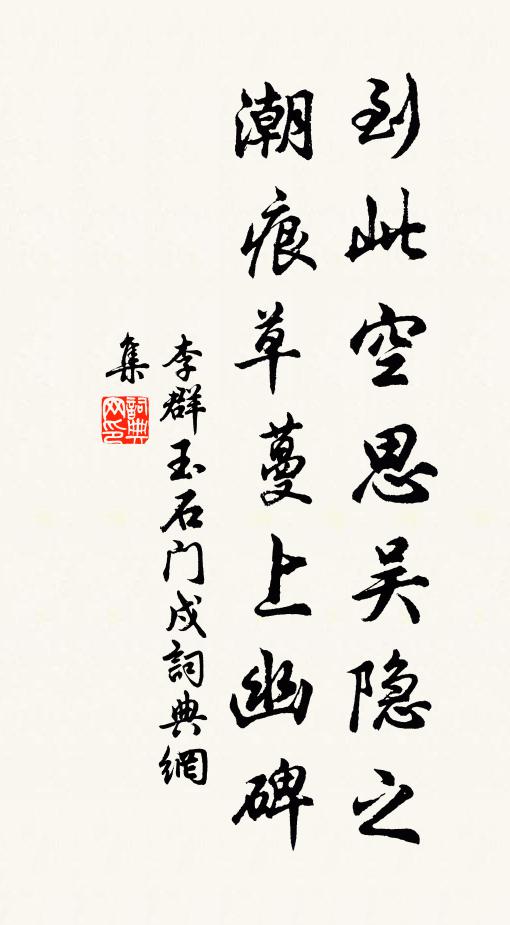 到此空思吴隐之
潮痕草蔓上幽碑
李群玉石门戍詞典網
集
詞典网印